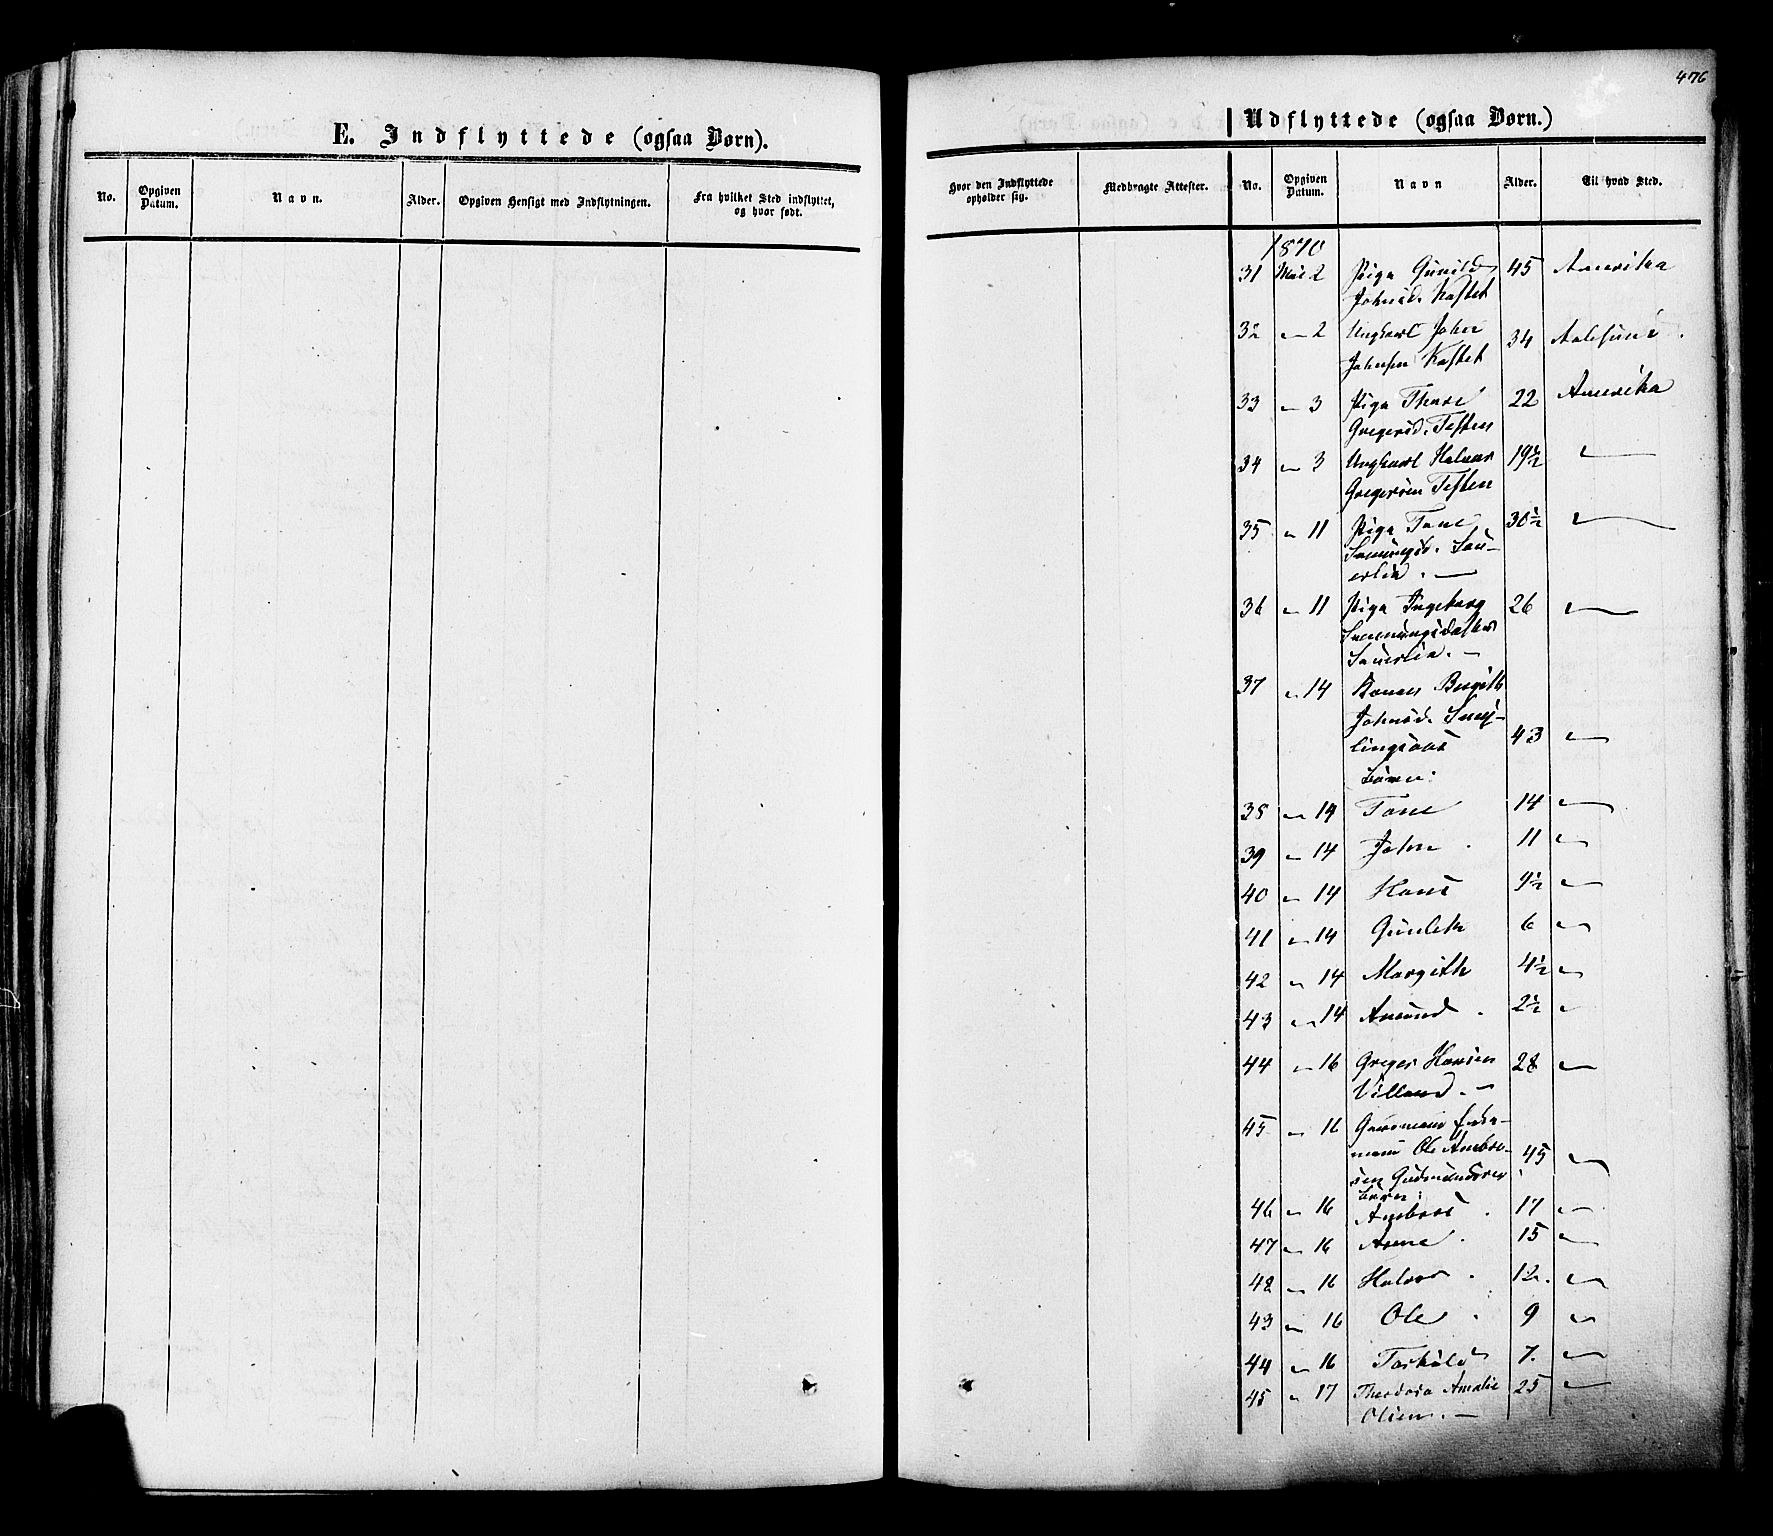 476
E. Indflyttede (ogsaa Børn).
No.
Opgiven Datum.
Navn.
Alder.
Opgiven Hensigt med Indflytningen.
Fra hvilket Sted indflyttet, og hvor født.
Udflyttede (ogsaa Børn.)
Hvor den Indflyttede opholder sig.
Medbragte Attester.
No.
Opgiven Datum.
Navn
Alder.
Til hvad Sted.
1870
31 Mai 2 Pige Gunild 45 Amerika
Johnsd. Kastet
32 " 2 Ungkarl John 34
Johnsen Kastet
33 " 3 Pige Thore 22 Amerika
Gregersd. Teften
34 " 3 Ungkarl Halvor 19 1/2 "
Gregersen Teften
35 " 11 Pige Tone 30 1/2 "
36 " 11 Pige Ingeborg 26 "
37 " 14 Konen Birgith
Johnsd.
43 "
Børn:
38 " 14 Tone 14 "
39 " 14 John 11 "
40 " 14 Hans 9 1/2 "
41 " 14 Gunlek 6 "
42 " 14 Margith 4 1/2 "
43 " 14 Amund 2 1/2 "
44 " 16 Greger Hansen 28 "
Villand
45 " 16 Gaardmand Enke-
mand Ole Ambro- 45 "
sen
Børn:
46 " 16 Ambros 17 "
47 " 16 Anne 15 "
48 " 16 Halvor 12 "
43 " 16 Ole 9 "
44 " 16 Torkild 7 "
45 " 17 Theodora Amalie 25 "
Olsen